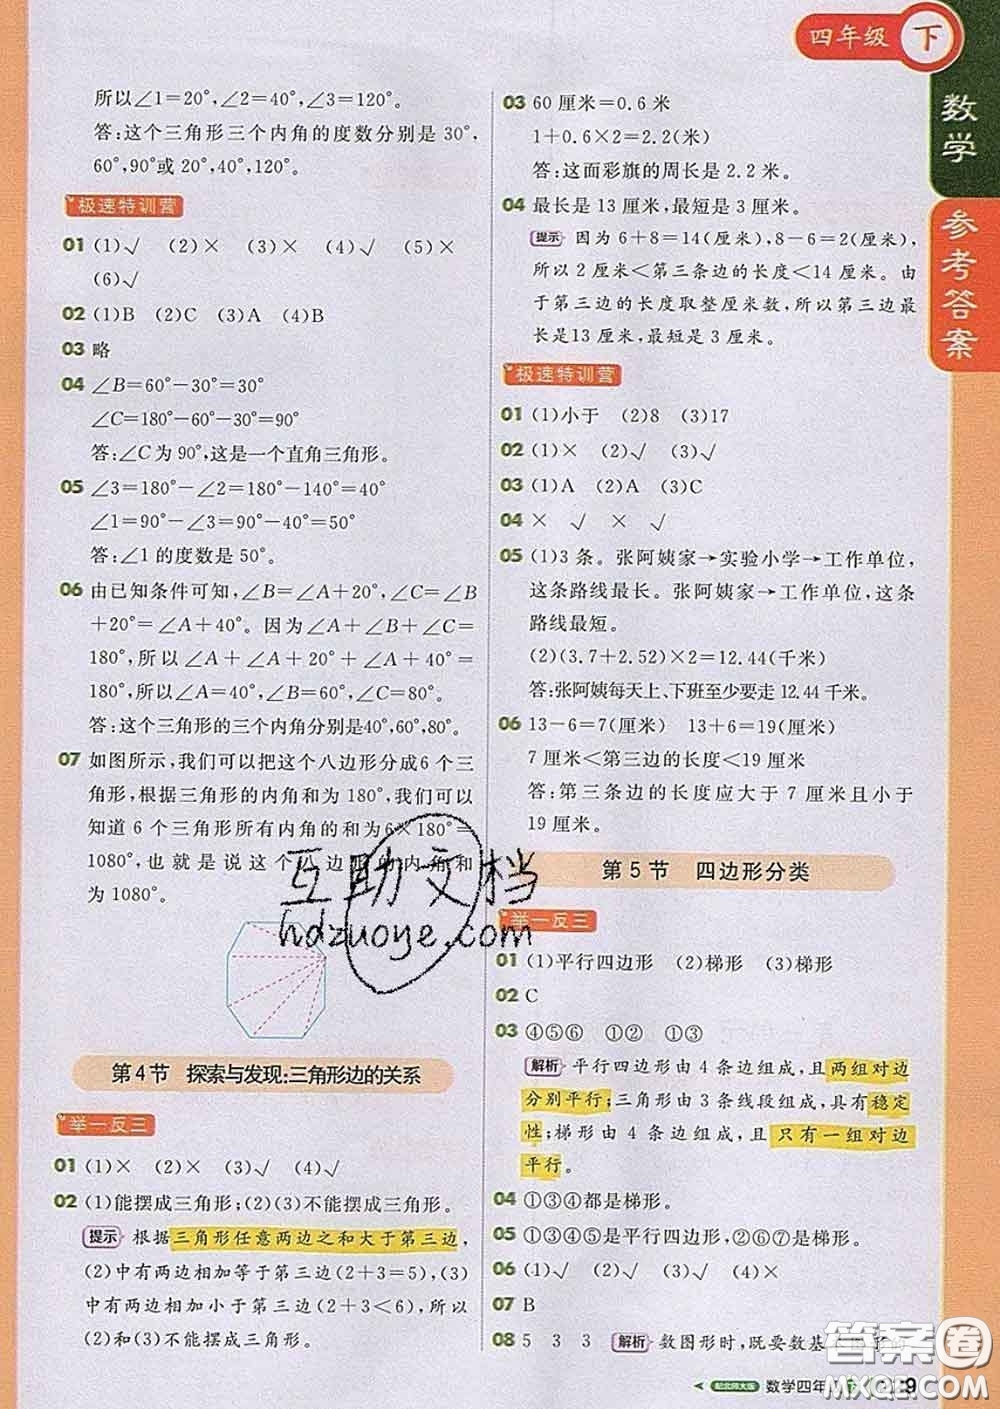 四年级 下
数学
参考答案
所以∠1=20°,∠2=40°,∠3=120°。
答:这个三角形三个内角的度数分别是30°,
60°,90°或20°,40°,120°。
极速特训营
01 (1)√ (2)× (3)× (4)√ (5)×
(6)√
02 (1)B (2)C (3)A (4)B
03 略
04 ∠B=60°-30°=30°
∠C=180°-60°-30°=90°
答:∠C为90°,这是一个直角三角形。
05 ∠3=180°-∠2=180°-140°=40°
∠1=90°-∠3=90°-40°=50°
答:∠1的度数是50°。
06 由已知条件可知,∠B=∠A+20°,∠C=∠B
+20°=∠A+40°。因为∠A+∠B+∠C=
180°,所以∠A+∠A+20°+∠A+40°=
180°,所以∠A=40°,∠B=60°,∠C=80°。
答:这个三角形的三个内角分别是40°,60°,80°。
07 如图所示,我们可以把这个八边形分成6个三
角形,根据三角形的内角和为180°,我们可以
知道6个三角形所有内角的和为6×180°=
1080°,也就是说这个八边形的内角和
为1080°。
互助文档
hdzuoye.com
第4节 探索与发现:三角形边的关系
举一反三
01 (1)× (2)× (3)√ (4)√
02 (1)能摆成三角形;(2)(3)不能摆成三角形。
提示 根据三角形任意两边之和大于第三边,
(2)中有两边相加等于第三边(2+3=5),(3)
中有两边相加小于第三边(2+3<6),所以
(2)和(3)不能摆成三角形。
03 60厘米=0.6米
1+0.6×2=2.2(米)
答:这面彩旗的周长是2.2米。
04 最长是13厘米,最短是3厘米。
提示 因为6+8=14(厘米),8-6=2(厘米),
所以2厘米<第三条边的长度<14厘米。由
于第三边的长度取整厘米数,所以第三边最
长是13厘米,最短是3厘米。
极速特训营
01 (1)小于 (2)8 (3)17
02 (1)× (2)√ (3)√
03 (1)A (2)A (3)C
04 × √ × √
05 (1)3条。张阿姨家→实验小学→工作单位,
这条路线最长。张阿姨家→工作单位,这条
路线最短。
(2)(3.7+2.52)×2=12.44(千米)
答:张阿姨每天上、下班至少要走12.44千米。
06 13-6=7(厘米) 13+6=19(厘米)
7厘米<第三边的长度<19厘米
答:第三条边的长度应大于7厘米且小于
19厘米。
第5节 四边形分类
举一反三
01 (1)平行四边形 (2)梯形 (3)梯形
02 C
03 ④⑤⑥ ①② ①③
解析 平行四边形由4条边组成,且两组对边
分别平行;三角形由3条线段组成,具有稳定
性;梯形由4条边组成,且只有一组对边
平行。
04 ①③④都是梯形。
05 ①③④⑤是平行四边形,②⑥⑦是梯形。
06 (1)√ (2)√ (3)√ (4)×
07 B
08 5 3 3 解析 数图形时,既要数基
配北师大版 数学四年
9
答案圈